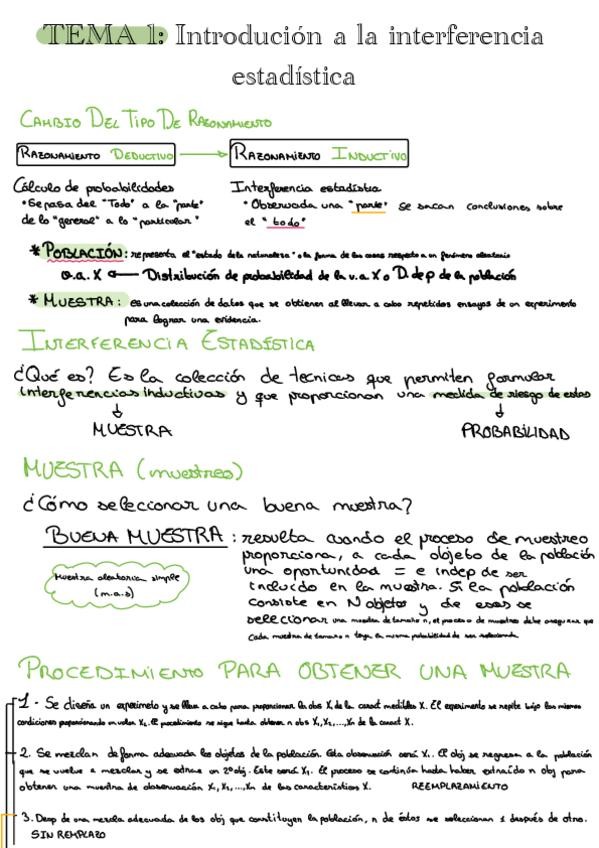 TEMA 1: Introdución a la interferencia
estadística
CAMBIO DEL TIPO DE RAZONAMIENTO
RAZONAMIENTO DEDUCTIVO → RAZONAMIENTO INDUCTIVO
Cálculo de probabilidades
• Se pasa del "Todo" a la "parte"
de lo "general" a lo "particular"
Interferencia estadística
• Observada una "parte" se sacan conclusiones sobre
el "todo"
* POBLACIÓN: representa el "estado de la naturaleza" o la forma de las cosas respecto a un fenómeno aleatorio
v.a. X ← Distribución de probabilidad de la v.a X o D. dep de la población
* MUESTRA: es una colección de datos que se obtienen al llevar a cabo repetidos ensayos de un experimento
para lograr una evidencia.
INTERFERENCIA ESTADÍSTICA
¿Qué es? Es la colección de tecnicas que permiten formular
interferencias inductivas y que proporcionan una medida de riesgo de estas
↓ ↓
MUESTRA PROBABILIDAD
MUESTRA (muestreo)
¿Cómo seleccionar una buena muestra?
BUENA MUESTRA: resulta cuando el proceso de muestreo
proporciona, a cada objeto de la población
una oportunidad = e indep de ser
incluido en la muestra. Si la población
consiste en N objetos y de esos se
seleccionan una muestra de tamaño n, el proceso de muestreo debe asegurar que
cada muestra de tamaño n tenga la misma probabilidad de ser seleccionada.
Muestra aleatoria simple
(m.a.s)
PROCEDIMIENTO PARA OBTENER UNA MUESTRA
1- Se diseña un experimeto y se lleva a cabo para proporcionar la obs X₁ de la caract medibles X. El experimento se repite bajo las mismas
condiciones proporcionando un valor X₂. El procedimiento se sigue hasta obtener n obs X₁, X₂, ..., Xn de la caract X.
2. Se mezclan de forma adecuada los objetos de la población. Esta observación será X₁. El obj se regresa a la población
que se vuelve a mezclar y se extrae un 2º obj. Este será X₂. El proceso se continúa hasta haber extraído n obj para
obtener una muestra de observación X₁, X₂, ..., Xn de las características X. REEMPLAZAMIENTO
3. Desp de una mezcla adecuada de los obj que constituyen la población, n de éstos se seleccionan 1 después de otro.
SIN REMPLAZO